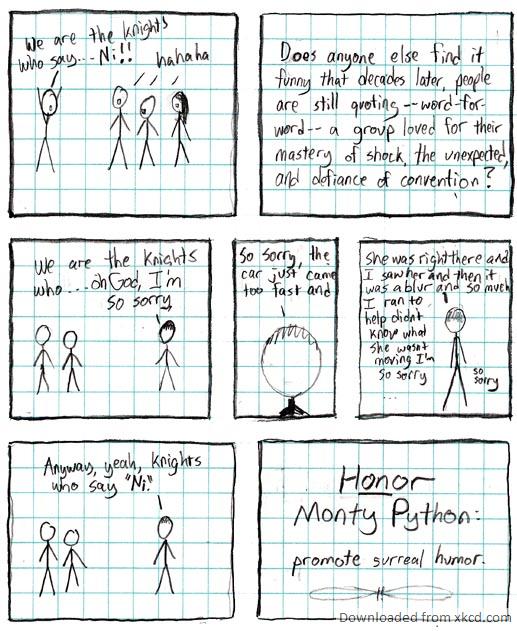 We are the knights
who say... Ni!!
hahaha
Does anyone else find it
funny that decades later, people
are still quoting--word-for-
word-- a group loved for their
mastery of shock, the unexpected,
and defiance of convention?
We are the Knights
who...oh God, I'm
so sorry
So sorry, the
car just came
too fast and
She was right there and
I saw her and then it
was a blur and so much
I ran to
help didnt
know what
She wasnt
moving I'm
so sorry
...
so
sorry
Anyway, yeah, knights
who say "Ni."
Honor
Monty Python:
promote surreal humor.
Downloaded from xkcd.com